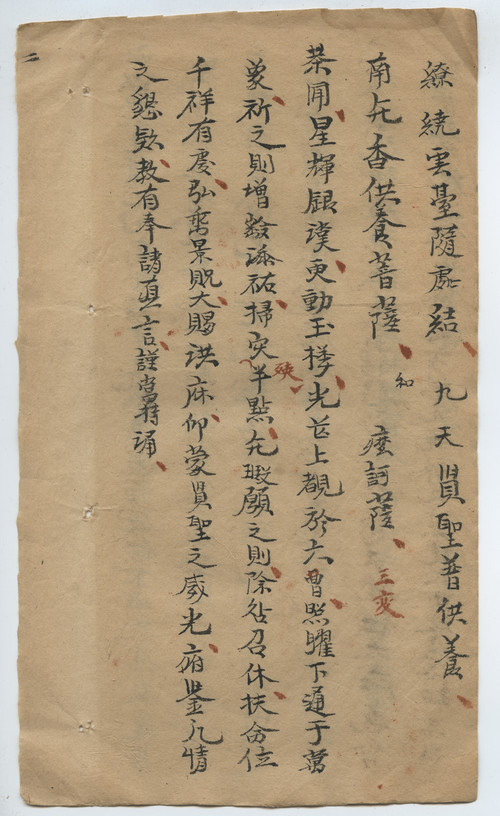 繚繞雲臺隨處結 九天賢聖普供養
南无香供養菩薩 和 摩訶薩 三变
恭聞星輝銀漢更動玉楼光芒上覩於六曹照耀下通于萬
彙祈之則增齡添祐掃灾殃半點无瑕願之則除殆召休扶命位
千祥有慶弘景貺大賜洪庥仰蒙賢聖之威光俯鉴凡情
之懇欵教有奉請真言謹當持誦
二